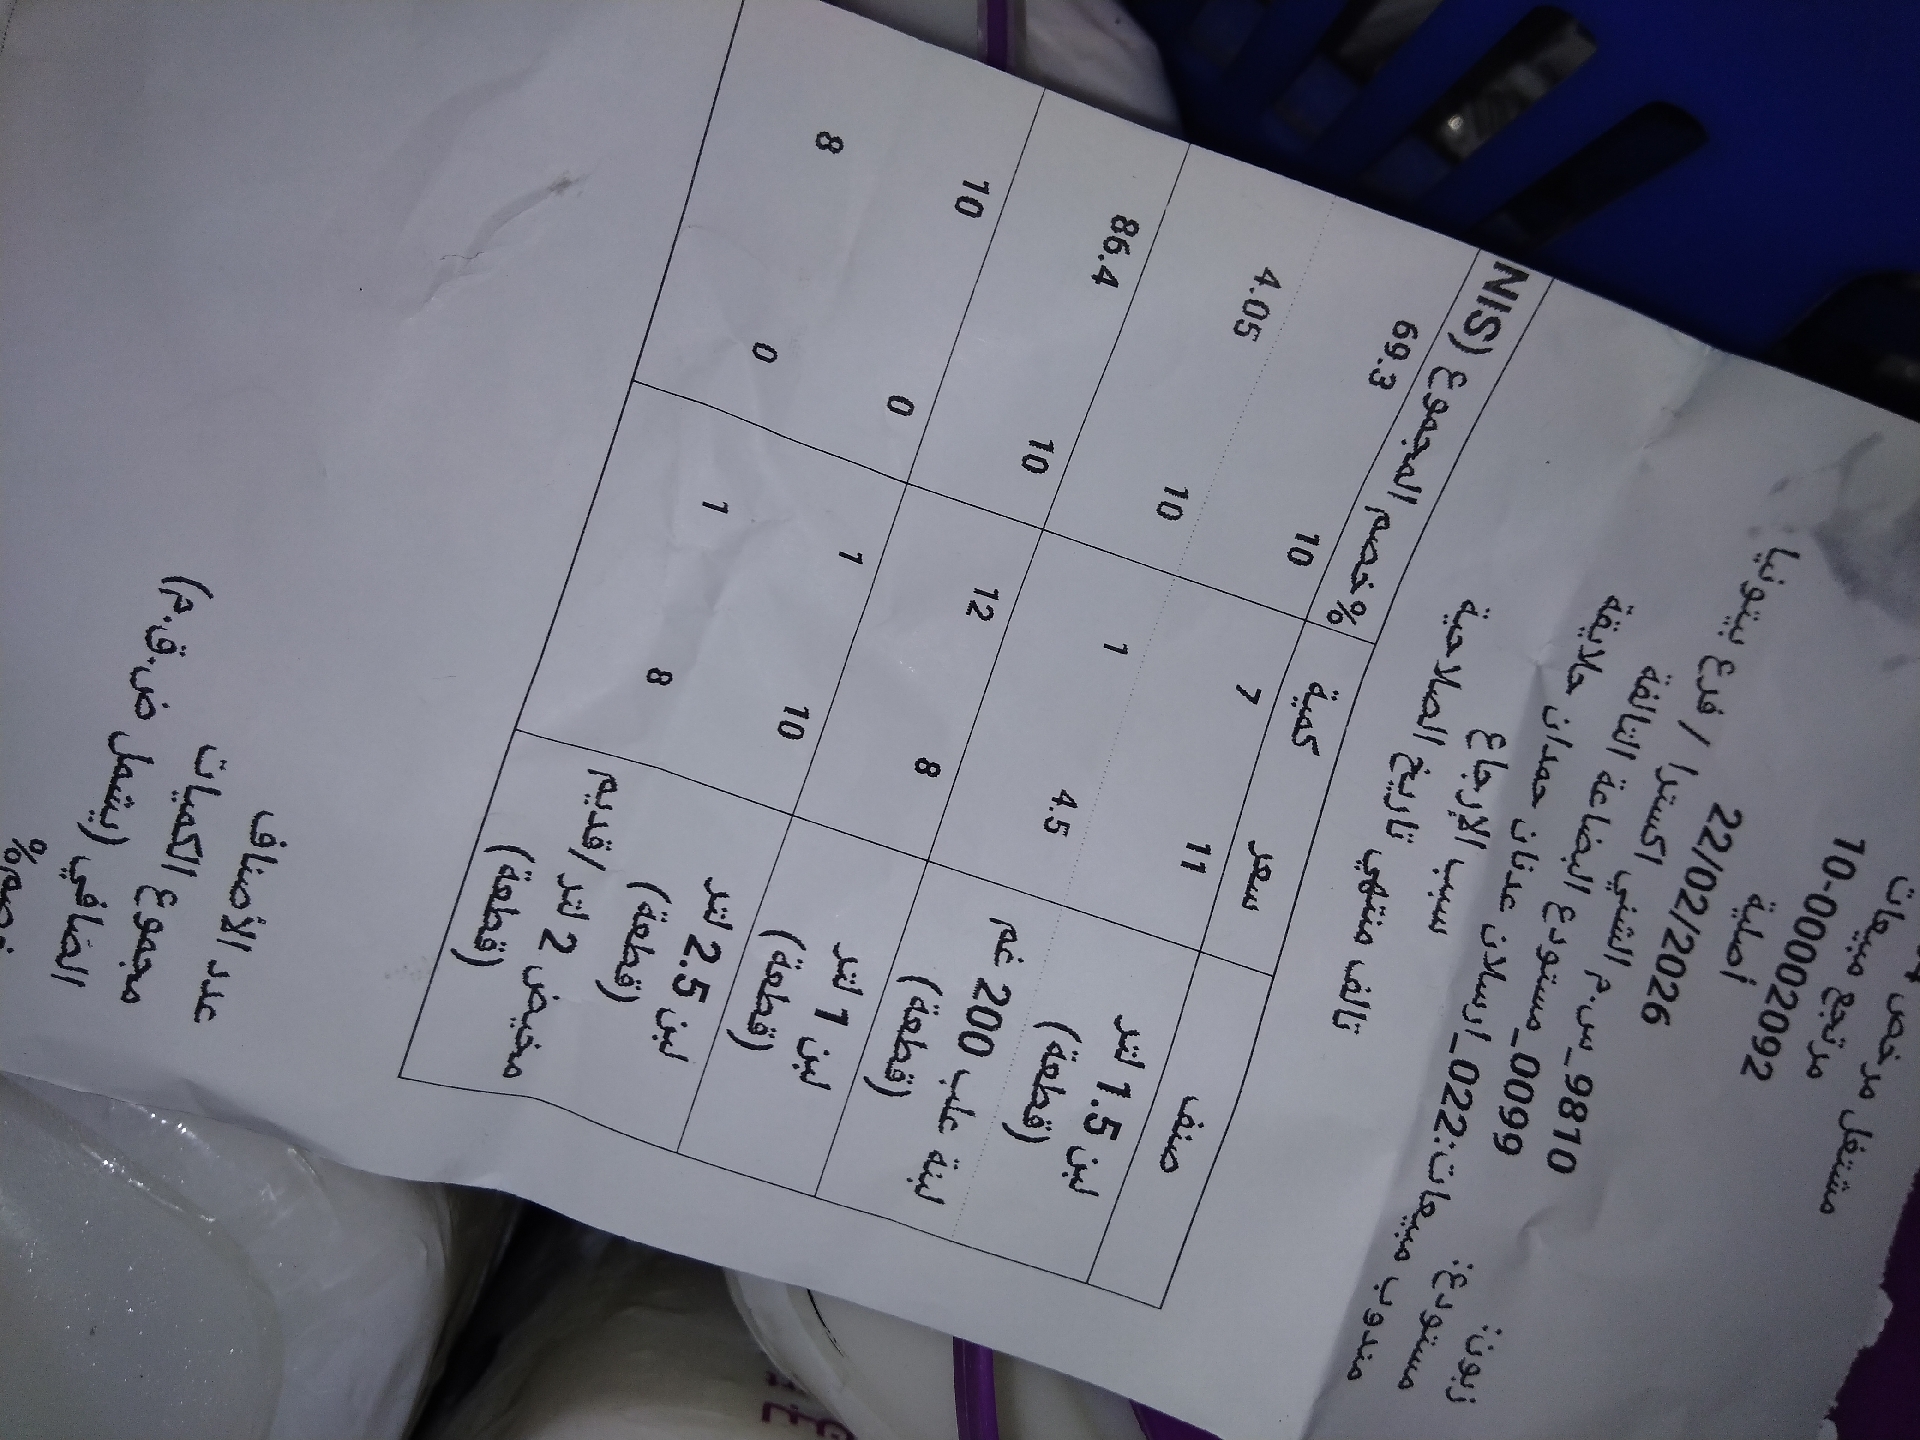 مشتغل مرخص
مرتجع مبيعات
10-000002092
أصلية
22/02/2026
زبون: 9810_س.م التقني اكسترا / فرع بيتونيا
مستودع: 0099_مستودع البضاعة التالفة
مندوب مبيعات:022_ارسلان عدنان حمدان حلايقة
سبب الإرجاع
تالف منتهي تاريخ الصلاحية
صنف سعر كمية %خصم المجموع (NIS
لبن 1.5 لتر (قطعة) 11 7 10 69.3
لبنة علب 200 غم (قطعة) 4.5 1 10 4.05
لبن 1 لتر (قطعة) 8 12 10 86.4
لبن 2.5 لتر (قطعة) 10 1 0 10
مخيض 2 لتر /قديم (قطعة) 8 1 0 8
عدد الأصناف
مجموع الكميات
الصافي (يشمل ض.ق.م)
خصم%